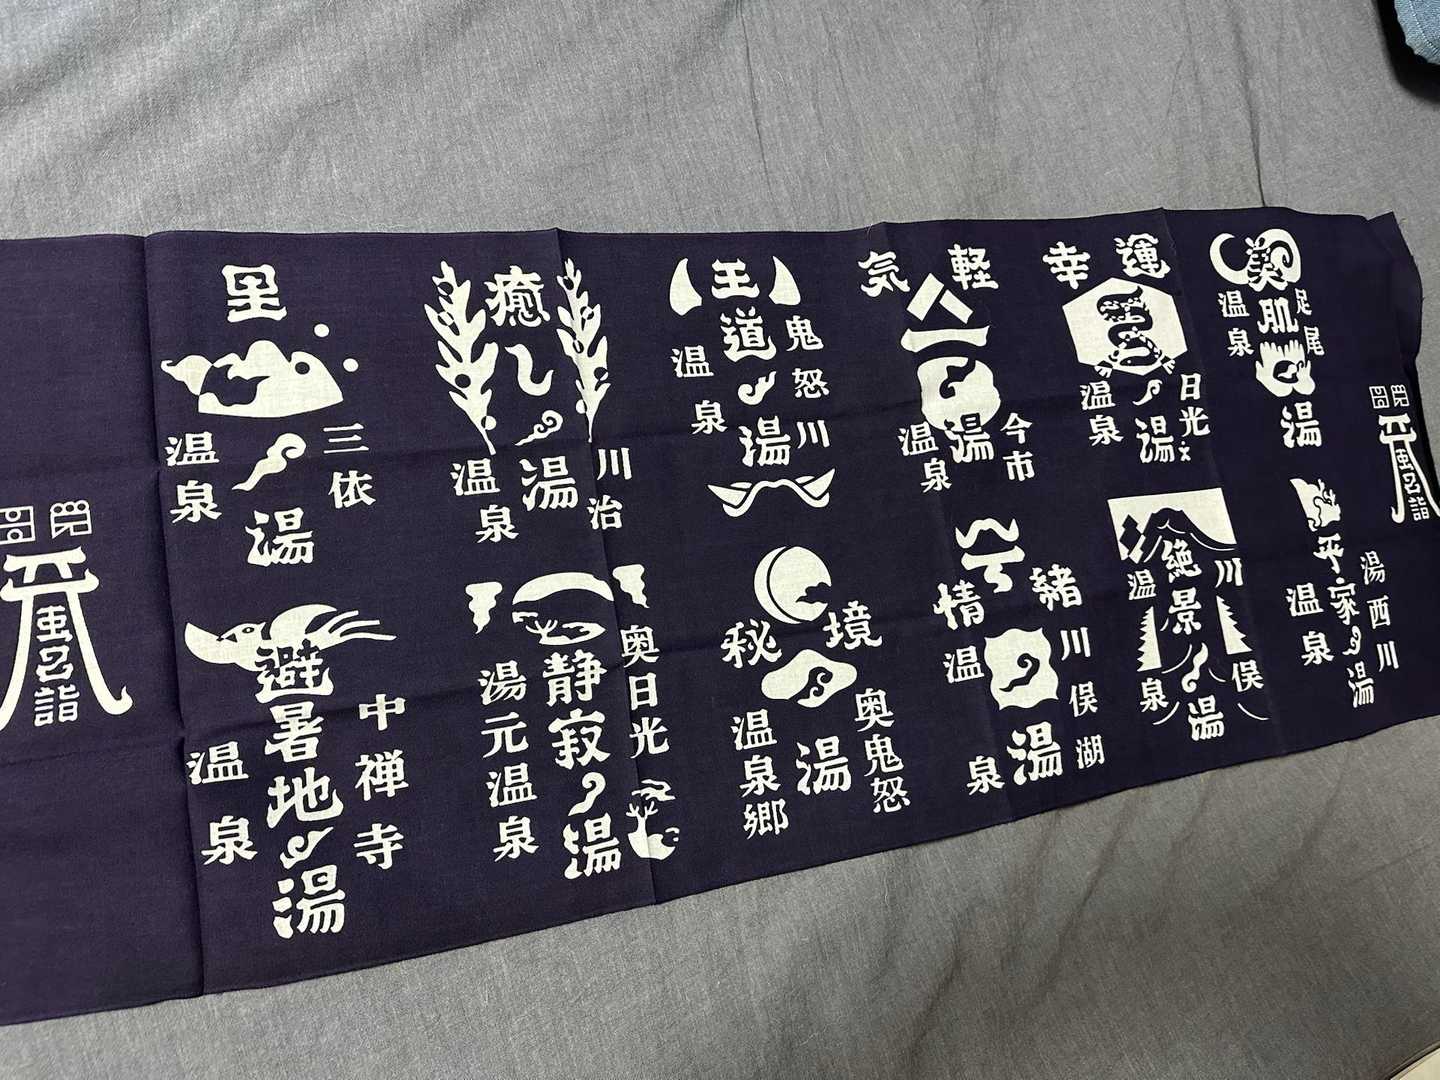 美肌の湯
足尾
温泉
幸運の湯
日光
温泉
気軽の湯
今市
温泉
王道の湯
鬼怒川
温泉
癒しの湯
川治
温泉
里の湯
三依
温泉
平家の湯
湯西川
温泉
絶景の湯
川俣
温泉
情緒の湯
川俣湖
温泉
秘境の湯
奥鬼怒
温泉郷
静寂の湯
奥日光
湯元温泉
避暑地の湯
中禅寺
温泉
風呂詣
風呂詣